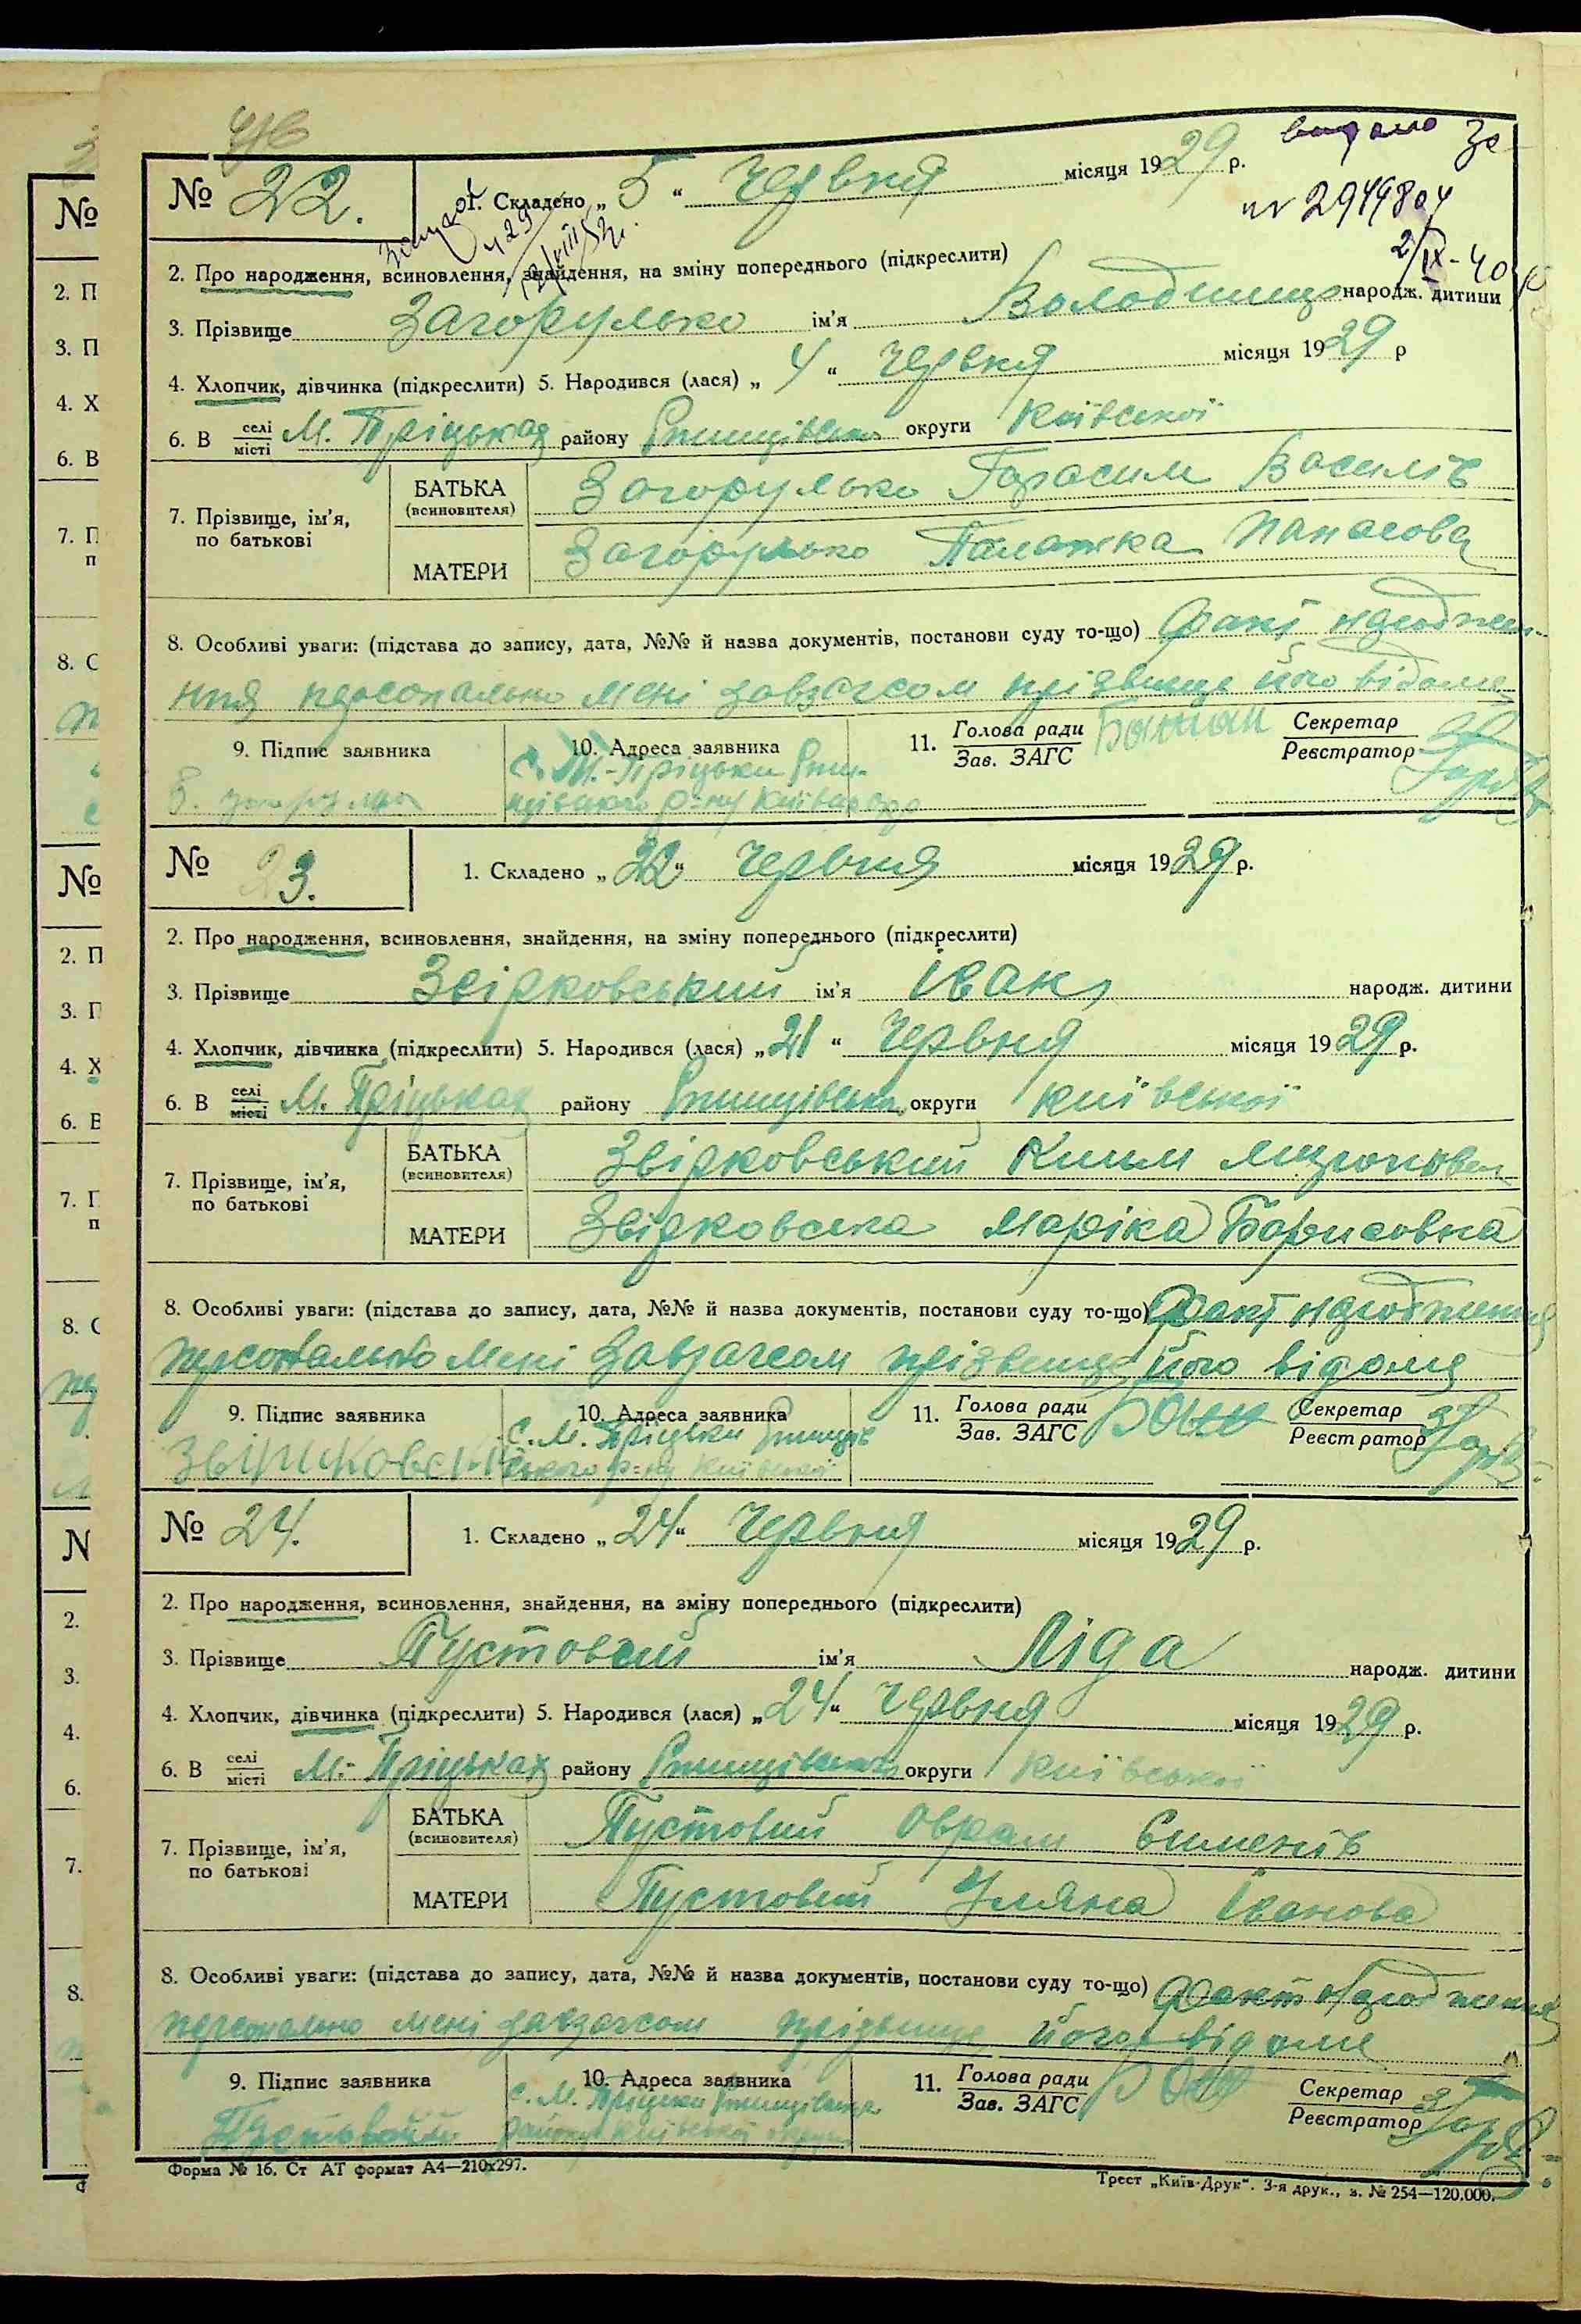 № 22. 1. Складено „ 5 “ Червня місяця 1929 р.
видано
№ 2944804
2/IX-40
2. Про народження, всиновлення, знайдення, на зміну попереднього (підкреслити)
3. Прізвище Загорулько ім'я Володимир народж. дитини
4. Хлопчик, дівчинка (підкреслити) 5. Народився (лася) „ 4 “ Червня місяця 1929 р
6. В селі місті М. Пріцьках району Ржищівськ. округи Київської
7. Прізвище, ім'я, по батькові
БАТЬКА (всиновителя) Загорулько Гарасим Василів
МАТЕРИ Загорулько Палажка Панасова
8. Особливі уваги: (підстава до запису, дата, №№ й назва документів, постанови суду то-що) Факт народжен-
ння персонально мені завзагсом прізвище його відоме
9. Підпис заявника
10. Адреса заявника
с. М.-Пріцьки Ржи-
щівського р-ну Київської
11. Голова ради Зав. ЗАГС Секретар Реєстратор
№ 23. 1. Складено „ 22 “ Червня місяця 1929 р.
2. Про народження, всиновлення, знайдення, на зміну попереднього (підкреслити)
3. Прізвище Звірковський ім'я Іван народж. дитини
4. Хлопчик, дівчинка (підкреслити) 5. Народився (лася) „ 21 “ Червня місяця 1929 р.
6. В селі місті М. Пріцьках району Ржищівськ. округи Київської
7. Прізвище, ім'я, по батькові
БАТЬКА (всиновителя) Звірковський Клим
МАТЕРИ Звірковська Маріка Борисовна
8. Особливі уваги: (підстава до запису, дата, №№ й назва документів, постанови суду то-що) Факт народження
персонально мені завзагсом прізвище його відоме
9. Підпис заявника
10. Адреса заявника
с. М. Пріцьки Ржищів
ського р-ну Київської
11. Голова ради Зав. ЗАГС Секретар Реєстратор
№ 24. 1. Складено „ 24 “ Червня місяця 1929 р.
2. Про народження, всиновлення, знайдення, на зміну попереднього (підкреслити)
3. Прізвище Пустовий ім'я Ліда народж. дитини
4. Хлопчик, дівчинка (підкреслити) 5. Народився (лася) „ 24 “ Червня місяця 1929 р.
6. В селі місті М.-Пріцьках району Ржищівськ. округи Київської
7. Прізвище, ім'я, по батькові
БАТЬКА (всиновителя) Пустовий Оврам Єименів
МАТЕРИ Пустовий Уляна Іванова
8. Особливі уваги: (підстава до запису, дата, №№ й назва документів, постанови суду то-що) Факт народження
персонально мені завзагсом прізвище його відоме
9. Підпис заявника
10. Адреса заявника
с. М. Пріцьки Ржищівськ.
району Київської округи
11. Голова ради Зав. ЗАГС Секретар Реєстратор
Форма № 16. Ст АТ формат А4—210х297.
Трест „Київ-Друк“. 3-я друк., з. № 254—120.000.